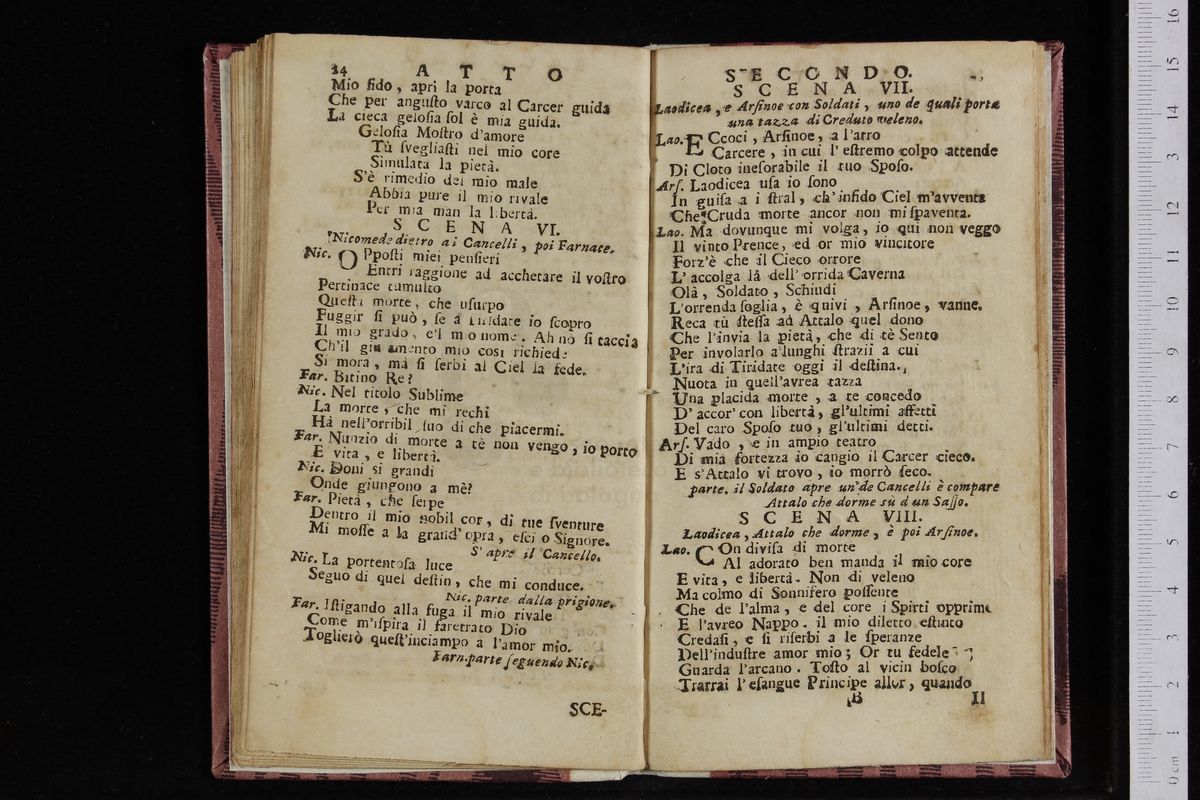 24 A T T O
Mio fido, apri la porta
Che per angusto varco al Carcer guida
La cieca gelosia sol è mia guida.
Gelosia Mostro d'amore
Tù svegliasti nel mio core
Simulata la pietà.
S'è rimedio del mio male
Abbia pure il mio rivale
Per mia man la libertà.
S C E N A VI.
Nicomede dietro ai Cancelli, poi Farnace.
Nic. OPposti miei pensieri
Entri raggione ad acchetare il vostro
Pertinace tumulto
Questa morte, che usurpo
Fuggir si può, se à Tiridate io scopro
Il mio grado, e'l mio nome. Ah nò si taccia
Ch'il giuramento mio così richiede
Si mora, mà si serbi al Ciel la fede.
Far. Bitino Re?
Nic. Nel titolo Sublime
La morte, che mi rechi
Hà nell'orribil suo di che piacermi.
Far. Nunzio di morte a tè non vengo, io porto
E vita, e libertà.
Nic. Doni si grandi
Onde giungono a mè?
Far. Pietà, che serpe
Dentro il mio nobil cor, di tue sventure
Mi mosse a la grand'opra, esci o Signore.
S'apre il Cancello.
Nic. La portentosa luce
Seguo di quel destin, che mi conduce.
Nic. parte dalla prigione.
Far. Istigando alla fuga il mio rivale
Come m'ispira il faretrato Dio
Toglierò quest'inciampo a l'amor mio.
Farn. parte seguendo Nic.
SCE-
S E C O N D O.
S C E N A VII.
Laodicea, e Arsinoe con Soldati, uno de quali porta
una tazza di Creduto veleno.
Lao. ECcoci, Arsinoe, a l'atro
Carcere, in cui l'estremo colpo attende
Di Cloto inesorabile il tuo Sposo.
Ars. Laodicea usa io sono
In guisa a i stral, ch'infido Ciel m'avventa
Che Cruda morte ancor non mi spaventa.
Lao. Ma dovunque mi volga, io qui non veggo
Il vinto Prence, ed or mio vincitore
Forz'è che il Cieco orrore
L'accolga là dell'orrida Caverna
Olà, Soldato, Schiudi
L'orrenda soglia, è quivi, Arsinoe, vanne.
Reca tù stessa ad Attalo quel dono
Che l'invia la pietà, che di tè Sento
Per involarlo a'lunghi strazii a cui
L'ira di Tiridate oggi il destina.
Nuota in quell'avrea tazza
Una placida morte, a te concedo
D'accor'con libertà, gl'ultimi affetti
Del caro Sposo tuo, gl'ultimi detti.
Ars. Vado, e in ampio teatro
Di mia fortezza io cangio il Carcer cieco.
E s'Attalo vi trovo, io morrò seco.
parte. il Soldato apre un'de Cancelli è compare
Attalo che dorme sù d'un Sasso.
S C E N A VIII.
Laodicea, Attalo che dorme, è poi Arsinoe.
Lao. COn divisa di morte
Al adorato ben manda il mio core
E vita, e libertà. Non di veleno
Ma colmo di Sonnifero possente
Che de l'alma, e del core i Spirti opprime
E l'avreo Nappo. il mio diletto estinto
Credasi, e si riserbi a le speranze
Dell'industre amor mio; Or tu fedele
Guarda l'arcano. Tosto al vicin bosco
Trarrai l'esangue Principe allor, quando
B Il